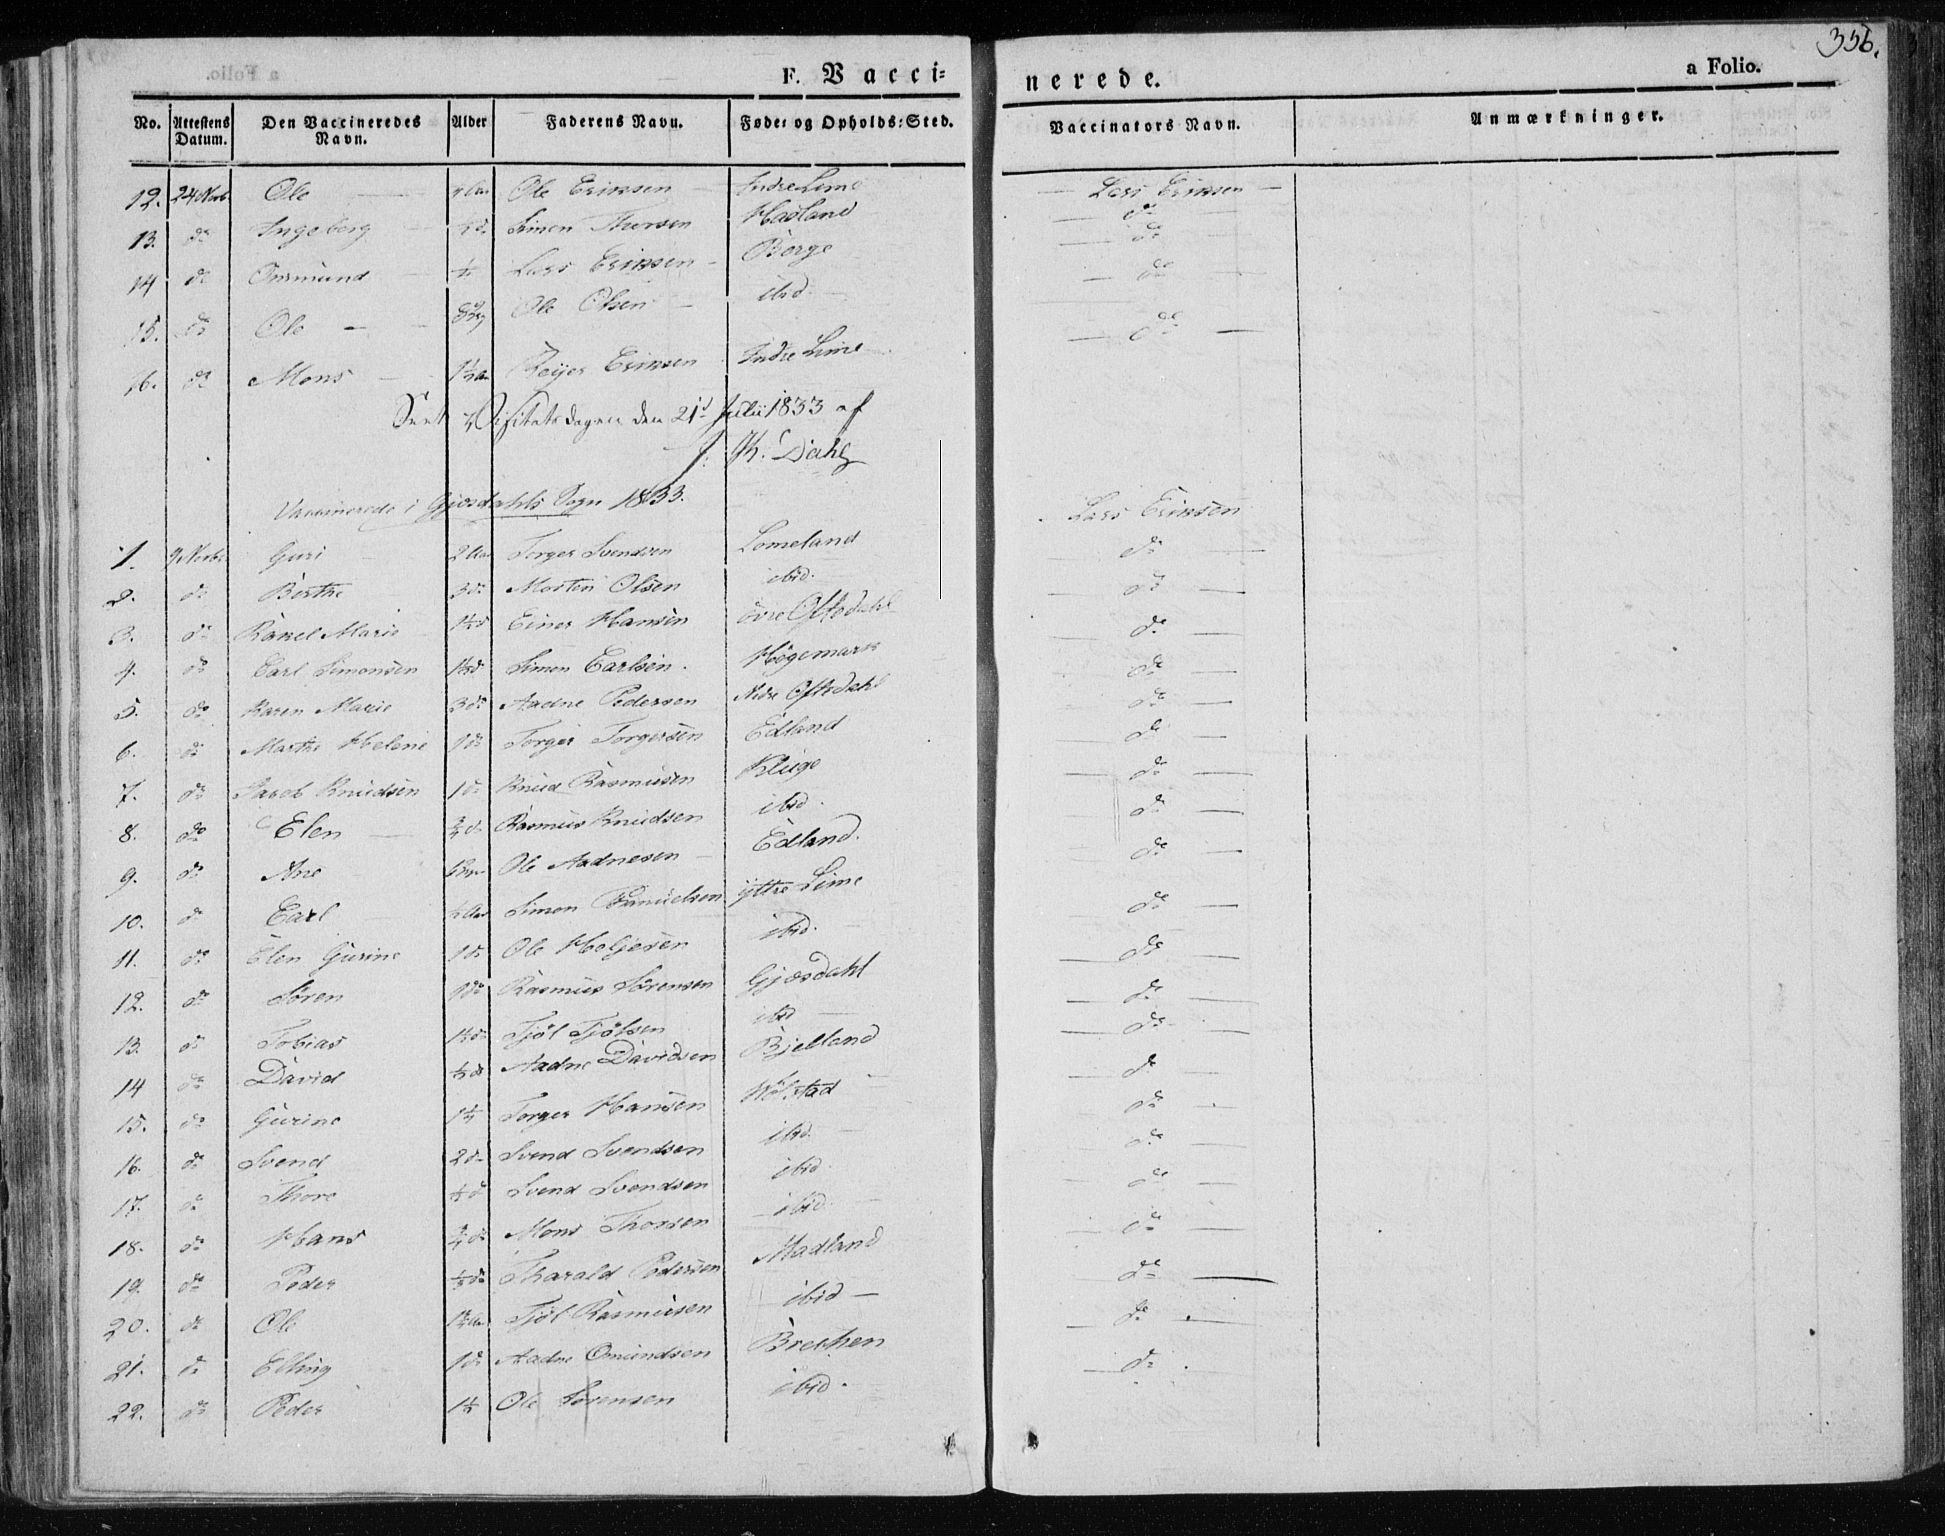 356.
a Folio.
F. Vacci=
nerede.
a Folio.
No. Attestens Datum. Den Vaccineredes Navn. Alder Faderens Navn. Føde= og Opholds=Sted. Vaccinators Navn. Anmærkninger.
12. 24 Ole Ole Eriksen Indre Lime Lars Eriksen
13. do Ingeborg Simon Madland do
14 do Lars Eriksen Børge do
15. do Ole Ole Olsen ibid. do
16. do Mons Reijer Eriksen Indre Lime do
Seet Visitatsdagen den 21d Julii 1833 af
Dahl
Vaccinerede i Gjesdahls Sogn 1833.
1. Guri 2 Aar Torger Svendsen Lomeland Lars Eriksen
2. do Berthe 3 do Morten Olsen ibid. do
3. do Rakel Marie 1½ d Einer Hansen övre Oftedahl do
4. do Carl Simonsen Simon Carlsen. Högemark do
5. do Karen Marie 3 do Aadne Pedersen Nedre Oftedahl do
6. do Marthe Helene 1 do Torger Torgersen Edland do
7. do Jacob Knudsen 1 do Knud Rasmusen Kluge do
8. do Elen Rasmus Knudsen ibid. do
9. do Ane Ole Aadnesen Edland. do
10. do Carl Simon Samuelsen ÿttre Lime do
11. do Elen Gurine 1 do Ole Holgersen ibid. do
12. do Sören 1 do Rasmus Sörensen Gjesdahl do
13. do Tobias Tjöl Tjölsen ibid do
14 do David ½ do Aadne Davidsen Bjelland do
15. do Gurine 1½ Torger Hansen do
16. do Svend 2 d Svend Svendsen ibid. do
17. do Thore Svend Svendsen ibid. do
18. do Hans Mons Thorsen ibid. do
19. do Peder ½ do Tharald Pedersen Madland do
20. do Ole Tjöl Rasmusen ibid do
21. do Elling 1 do Aadne Omundsen Brekken do
22. do Peder 1½ Ole Sörensen ibid. do